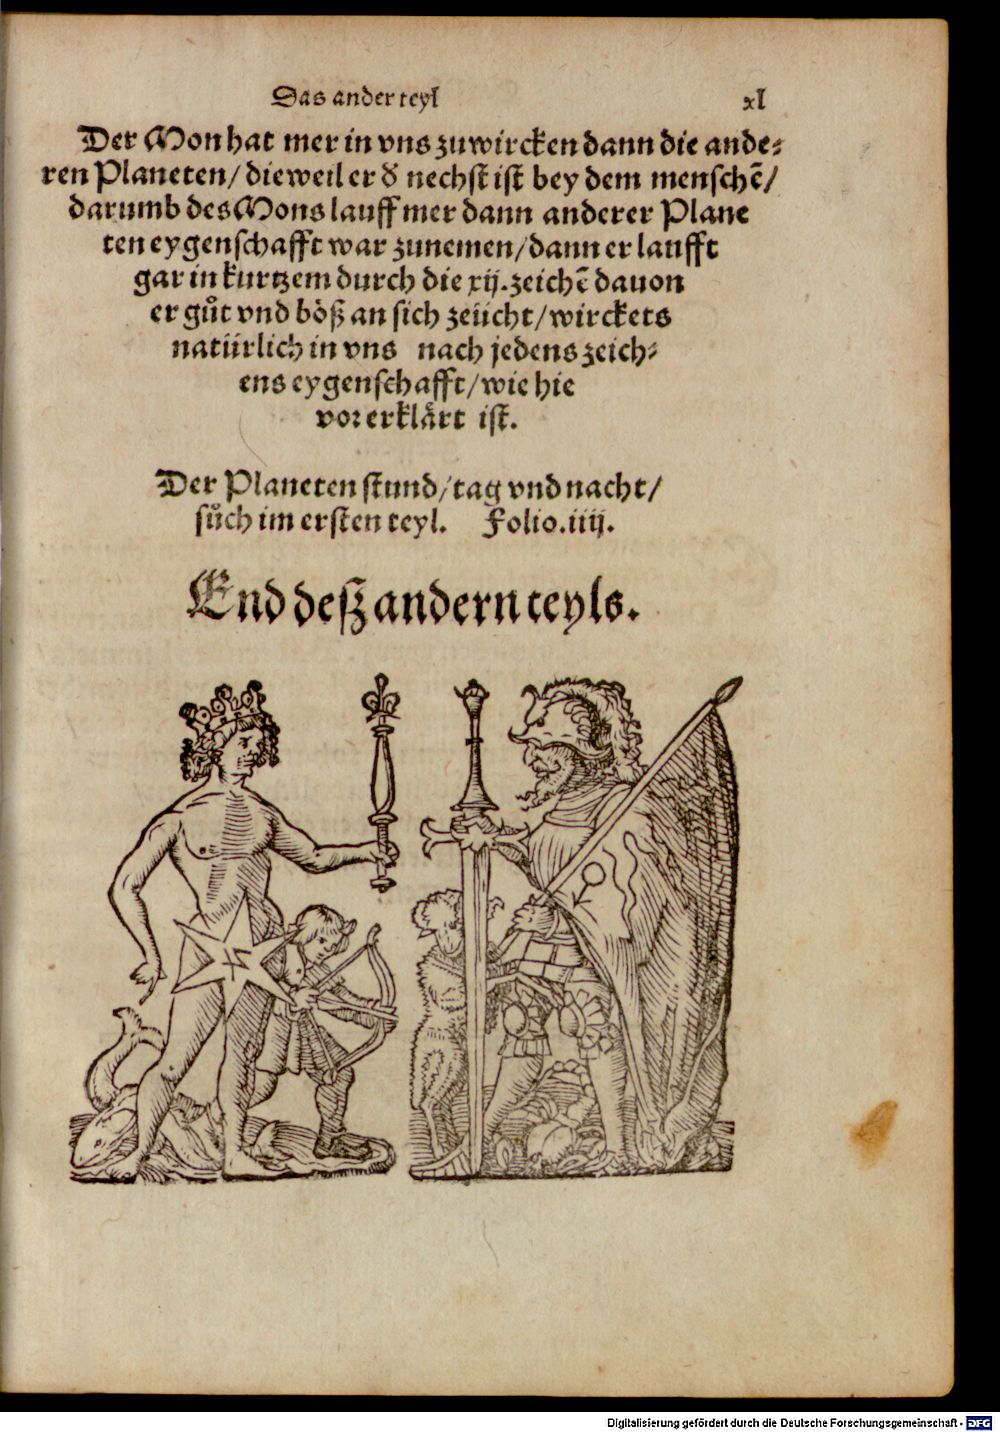 Das ander teyl xl
Der Mon hat mer in vns zuwircken dann die ande⸗
ren Planeten/ dieweil er d̕ nechst ist bey dem menschē/
darumb des Mons lauff mer dann anderer Plane
ten eygenschafft war zunemen/ dann er laufft
gar in kurtzem durch die xij. zeichē dauon
er gůt vnd böß an sich zeücht/ wirckets
natürlich in vns nach jedens zeich⸗
ens eygenschafft/ wie hie
vor erklårt ist.
Der Planeten stund/ tag vnd nacht/
sůch im ersten teyl. Folio. iiij.
End deß andern teyls.
Digitalisierung gefördert durch die Deutsche Forschungsgemeinschaft - DFG